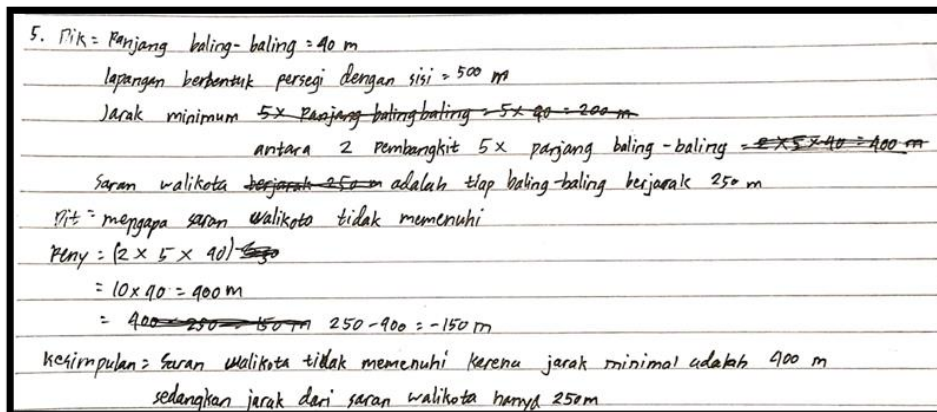 5. Dik = Panjang baling-baling = 40 m
lapangan berbentuk persegi dengan sisi = 500 m
Jarak minimum 5x Panjang baling baling = 5 x 40 = 200 m
antara 2 pembangkit 5x panjang baling-baling = 2 x 5 x 40 = 400 m
Saran walikota berjarak 250 m adalah tiap baling-baling berjarak 250 m
Dit = mengapa saran walikota tidak memenuhi
Peny = (2 x 5 x 40)
= 10 x 40 = 400 m
= 400 - 250 = 150 m 250 - 400 = -150 m
Kesimpulan = Saran walikota tidak memenuhi karena jarak minimal adalah 400 m
sedangkan jarak dari saran walikota hanya 250 m